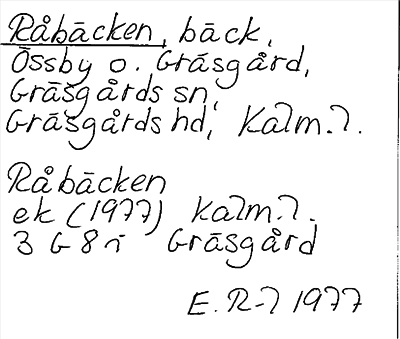 Råbäcken, bäck,
Össby o. Gräsgård,
Gräsgårds sn,
Gräsgårds hd, Kalm. l.
Råbäcken
ek (1977) Kalm. l.
3 G 8 i Gräsgård
E. R-l 1977